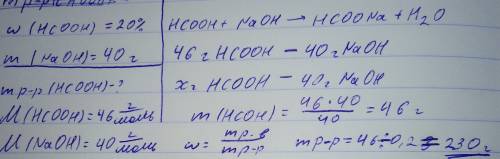 w (HCOOH) = 20%
m (NaOH) = 40 г
mр-р (HCOOH) - ?
M (HCOOH) = 46 г/моль
M (NaOH) = 40 г/моль
HCOOH + NaOH → HCOONa + H2O
46 г HCOOH – 40 г NaOH
xг HCOOH – 40 г NaOH
m (HCOH) = 46·40/40 = 46 г
w = mр-в/mр-р mр-р = 46÷0,2 = 230 г